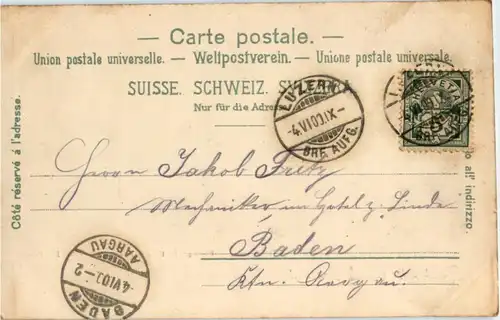 — Carte postale. —
Union postale universelle. — Weltpostverein. — Unione postale universale.
SUISSE. SCHWEIZ.
Nur für die Adresse
Côté réservé à l'adresse.
all' indirizzo.
LUZERN
4.VI.0 IX—
BRF. AUFG.
HELVETIA
Herrn Jakob Fretz
Mechaniker im Hotel z. Linde
Baden
Ktn. Aargau.
BADEN
4.VI.0 —2
AARGAU